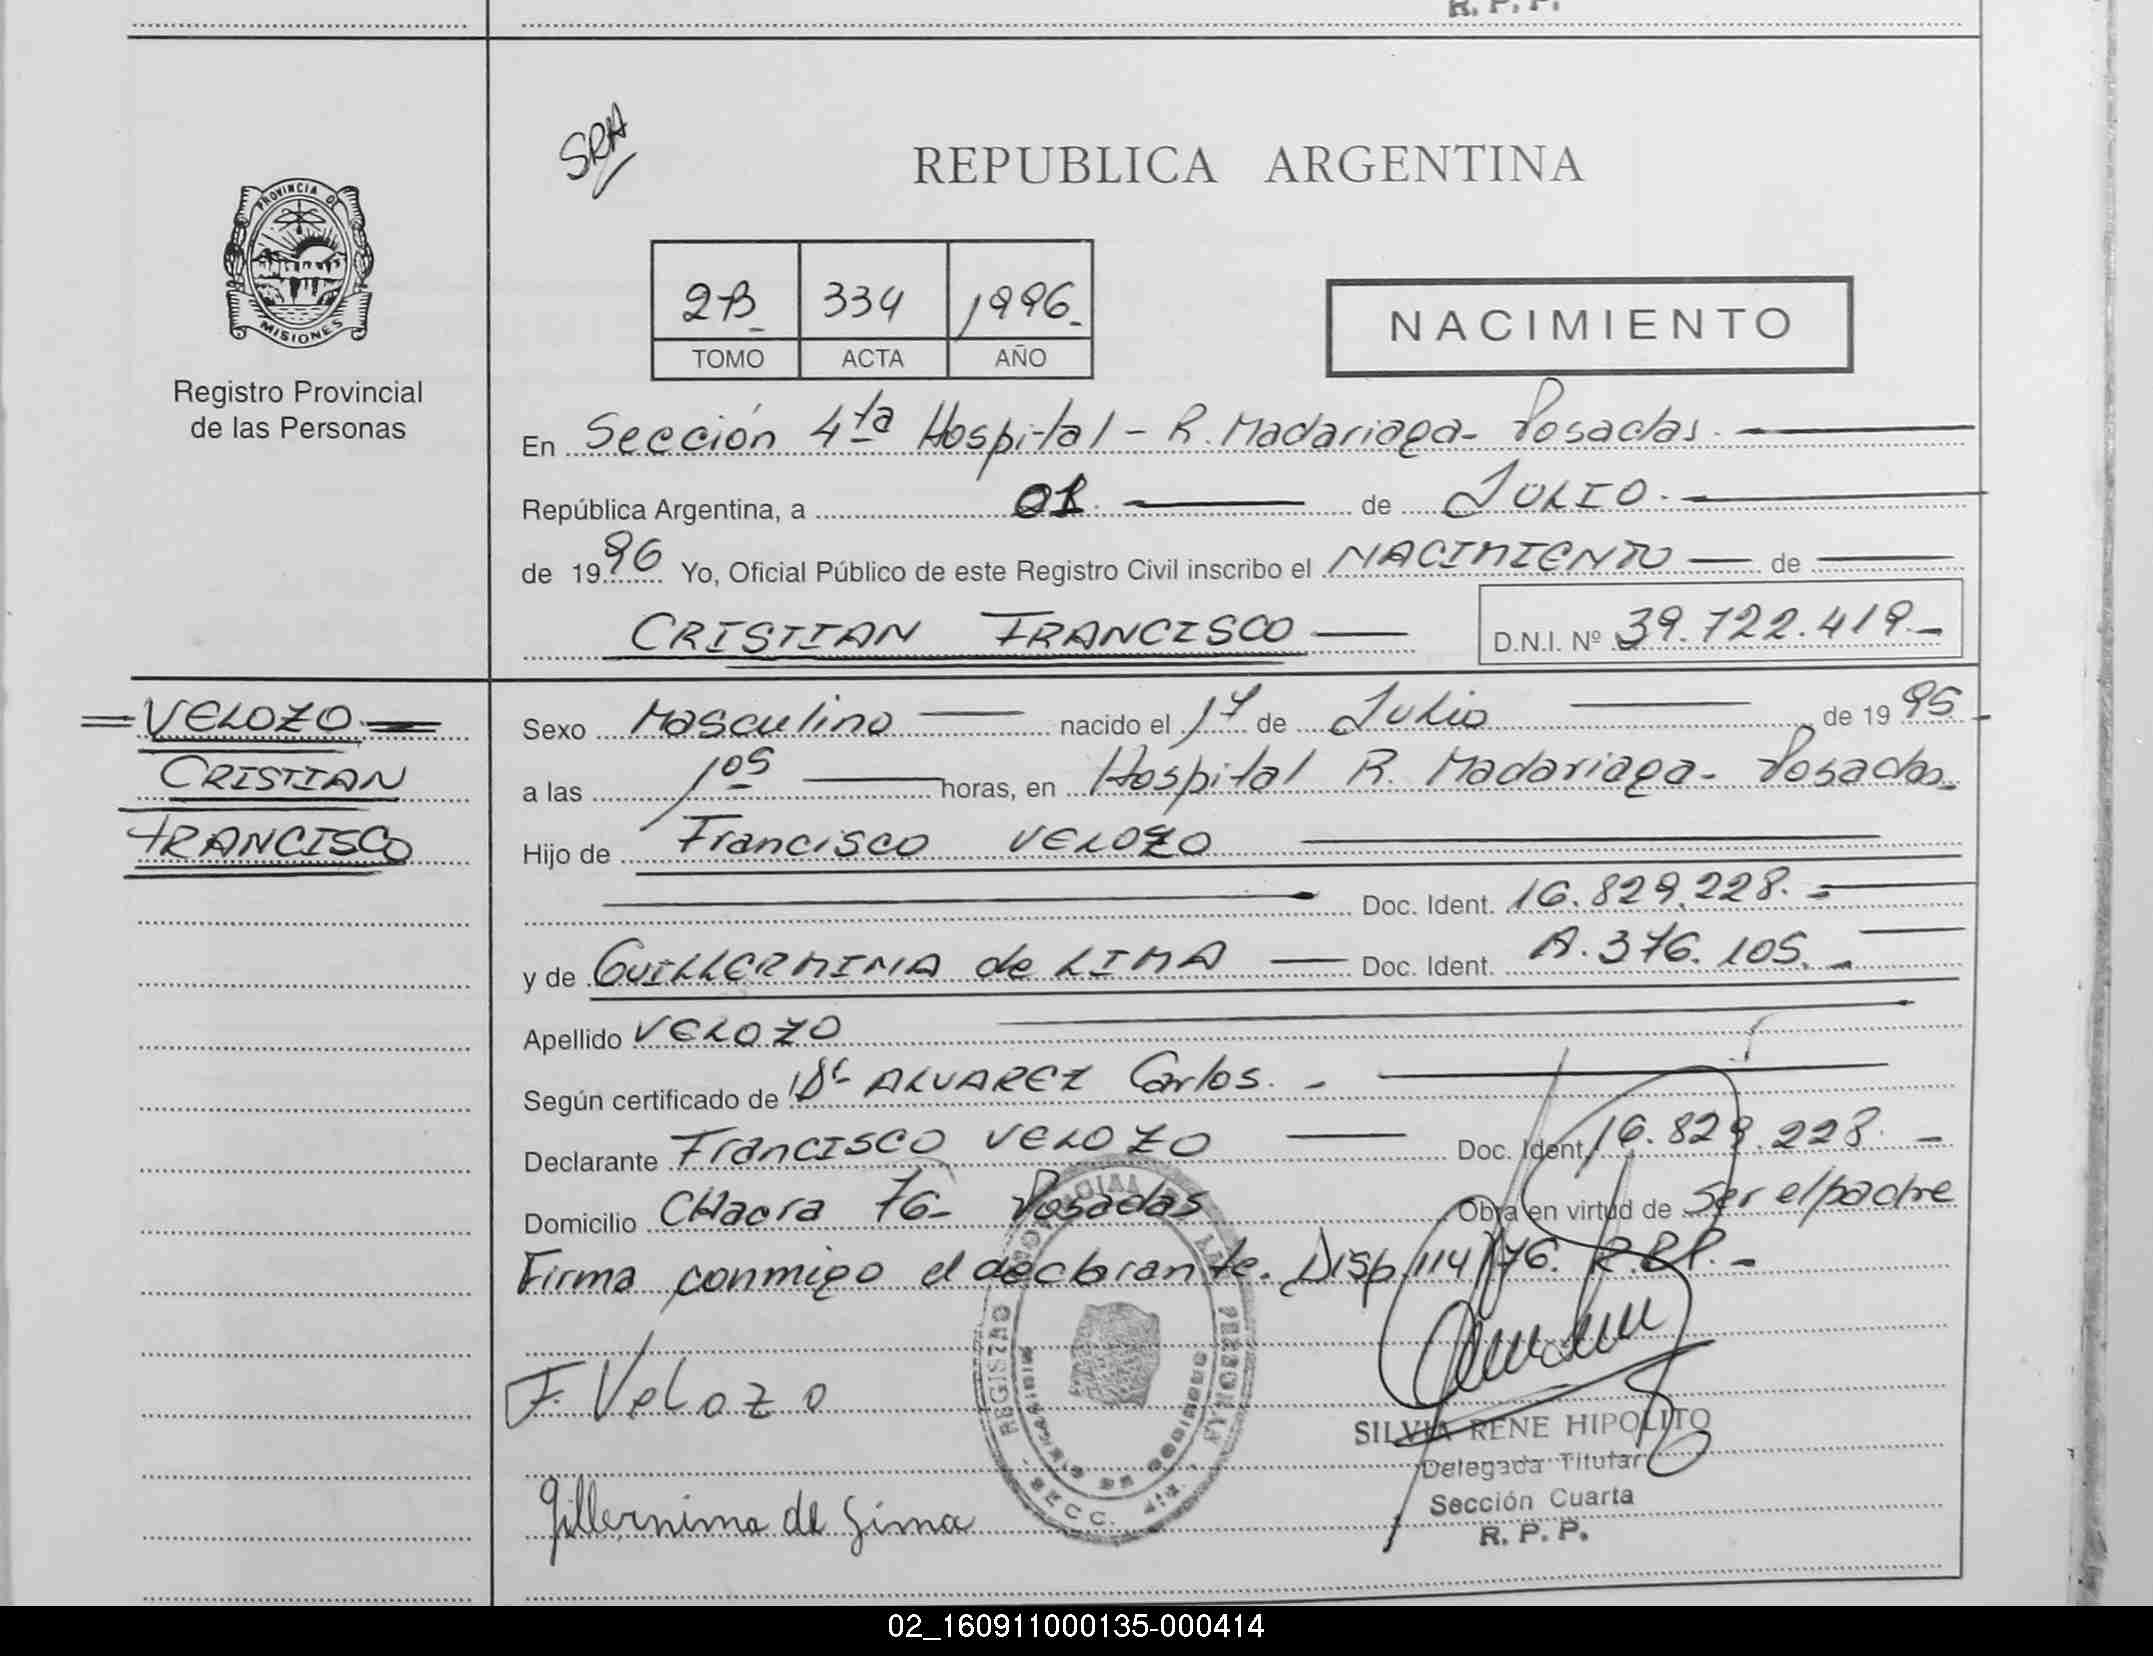 R. P. P.
SRH
REPUBLICA ARGENTINA
PROVINCIA DE
MISIONES
Registro Provincial
de las Personas
2B 334 1996
TOMO ACTA AÑO
NACIMIENTO
En Sección 4ta Hospital - R. Madariaga - Posadas.
República Argentina, a 01 de JULIO.
de 1996 Yo, Oficial Público de este Registro Civil inscribo el NACIMIENTO de
CRISTIAN FRANCISCO
D.N.I. Nº 39.722.419
VELOZO
CRISTIAN
FRANCISCO
Sexo Masculino nacido el 14 de Julio de 1995
a las 1 05 horas, en Hospital R. Madariaga - Posadas
Hijo de Francisco VELOZO
Doc. Ident. 16.829.228.
y de GUILLERMINA de LIMA Doc. Ident. A.376.105.
Apellido VELOZO
Según certificado de Dr ALVAREZ Carlos.
Declarante Francisco VELOZO Doc. Ident. 16.829.228.
Domicilio CHacra 76 - Posadas Obra en virtud de ser el padre
Firma conmigo el declarante. Disp 114/76. R.P.P.
F. Velozo
SILVIA RENE HIPOLITO
Delegada Titular
Sección Cuarta
R. P. P.
Gillernima de Lima
REGISTRO PERSONAS
SECC.
02_160911000135-000414